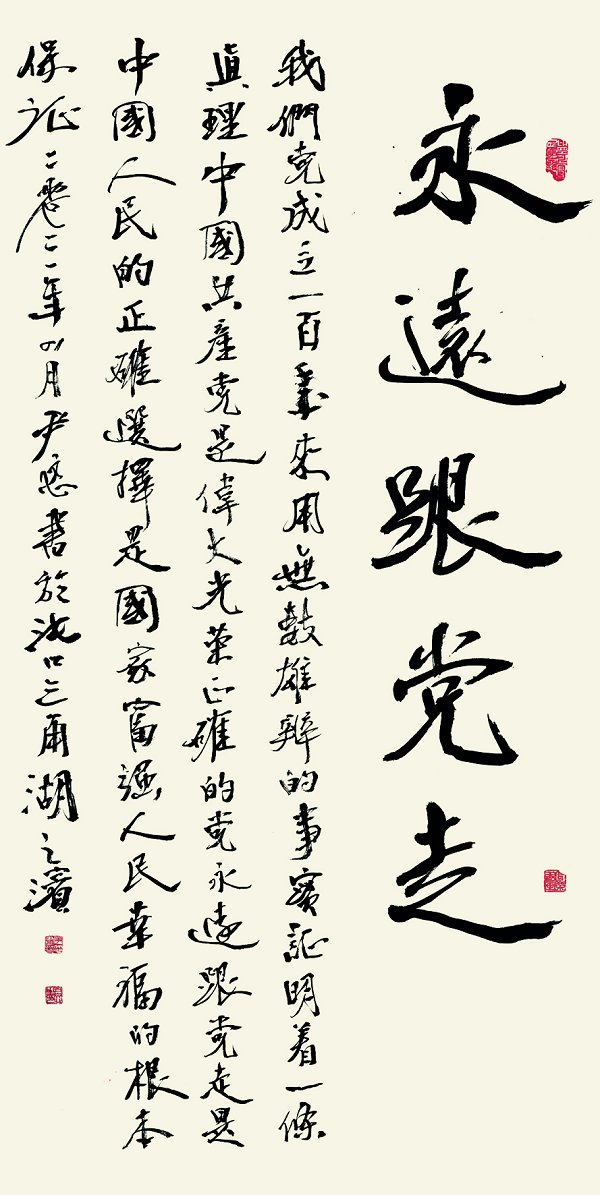 永遠跟党走
我們党成立一百年來用無數雄辯的事實証明着一條
真理中國共產党是偉大光荣正確的党永遠跟党走是
中國人民的正確選擇是國家富强人民幸福的根本
保証二零二一年四月尹 書於 口三角湖之濱